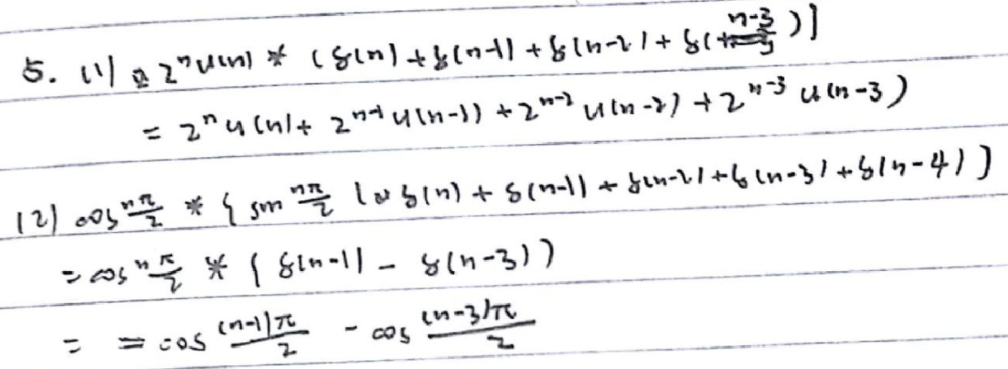 5. (1) 2ⁿu(n) * (δ(n)+δ(n-1)+δ(n-2)+δ(n-3))]
= 2ⁿu(n)+ 2ⁿ⁻¹u(n-1)+2ⁿ⁻²u(n-2)+2ⁿ⁻³u(n-3)
(2) cos nπ/2 * { sin nπ/2 [δ(n)+δ(n-1)+δ(n-2)+δ(n-3)+δ(n-4)]
= cos nπ/2 * {δ(n-1) - δ(n-3))
= = cos (n-1)π/2 - cos (n-3)π/2